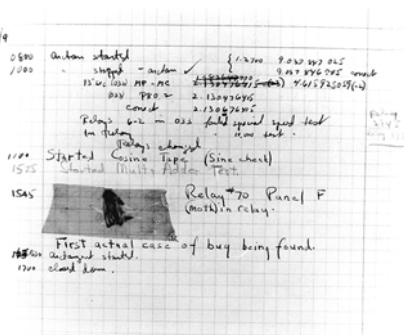 /9
0800 antan started
1000 " stopped - antan ✓ { 1.2700 9.037 847 025
9.037 846 995 correct
13"uc (032) MP - MC 4.615925059(-2)
(033) PRO 2 2.130476415
correct 2.130676415
Relays 6-2 in 033 failed special speed test
in relay " 10,000 test .
Relays changed
1100 Started Cosine Tape (Sine check)
1525 Started Mult + Adder Test.
1545 Relay #70 Panel F
(moth) in relay.
First actual case of bug being found.
antangent started.
1700 closed down.